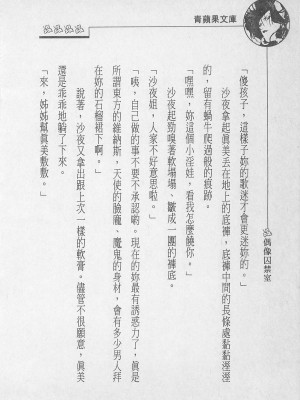 青蘋果文庫
偶像囚禁室
「傻孩子，這樣子妳的歌迷才會更迷妳的。」
沙夜拿起真美丟在地上的底褲，底褲中間的長條處黏黏溼溼
的，留有蝸牛爬過般的痕跡。
「嘿嘿，妳這個小淫娃，看我怎麼饒你。」
沙夜起勁嗅著軟塌塌、皺成一團的褲底。
「沙夜姐，人家不好意思啦。」
「咦，自己做的事不要不承認喲。現在的妳最有誘惑力了，真是
所謂東方的維納斯，天使的臉龐、魔鬼的身材，會有多少男人拜
在妳的石榴裙下啊。」
說著，沙夜又拿出跟上次一樣的軟膏。儘管不很願意，真美
還是乖乖地躺了下來。
「來，姊姊幫真美敷敷。」